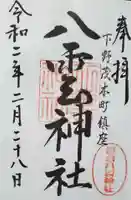 奉拝
下野茂木町鎮座
八雲神社
令和二年二月二十八日